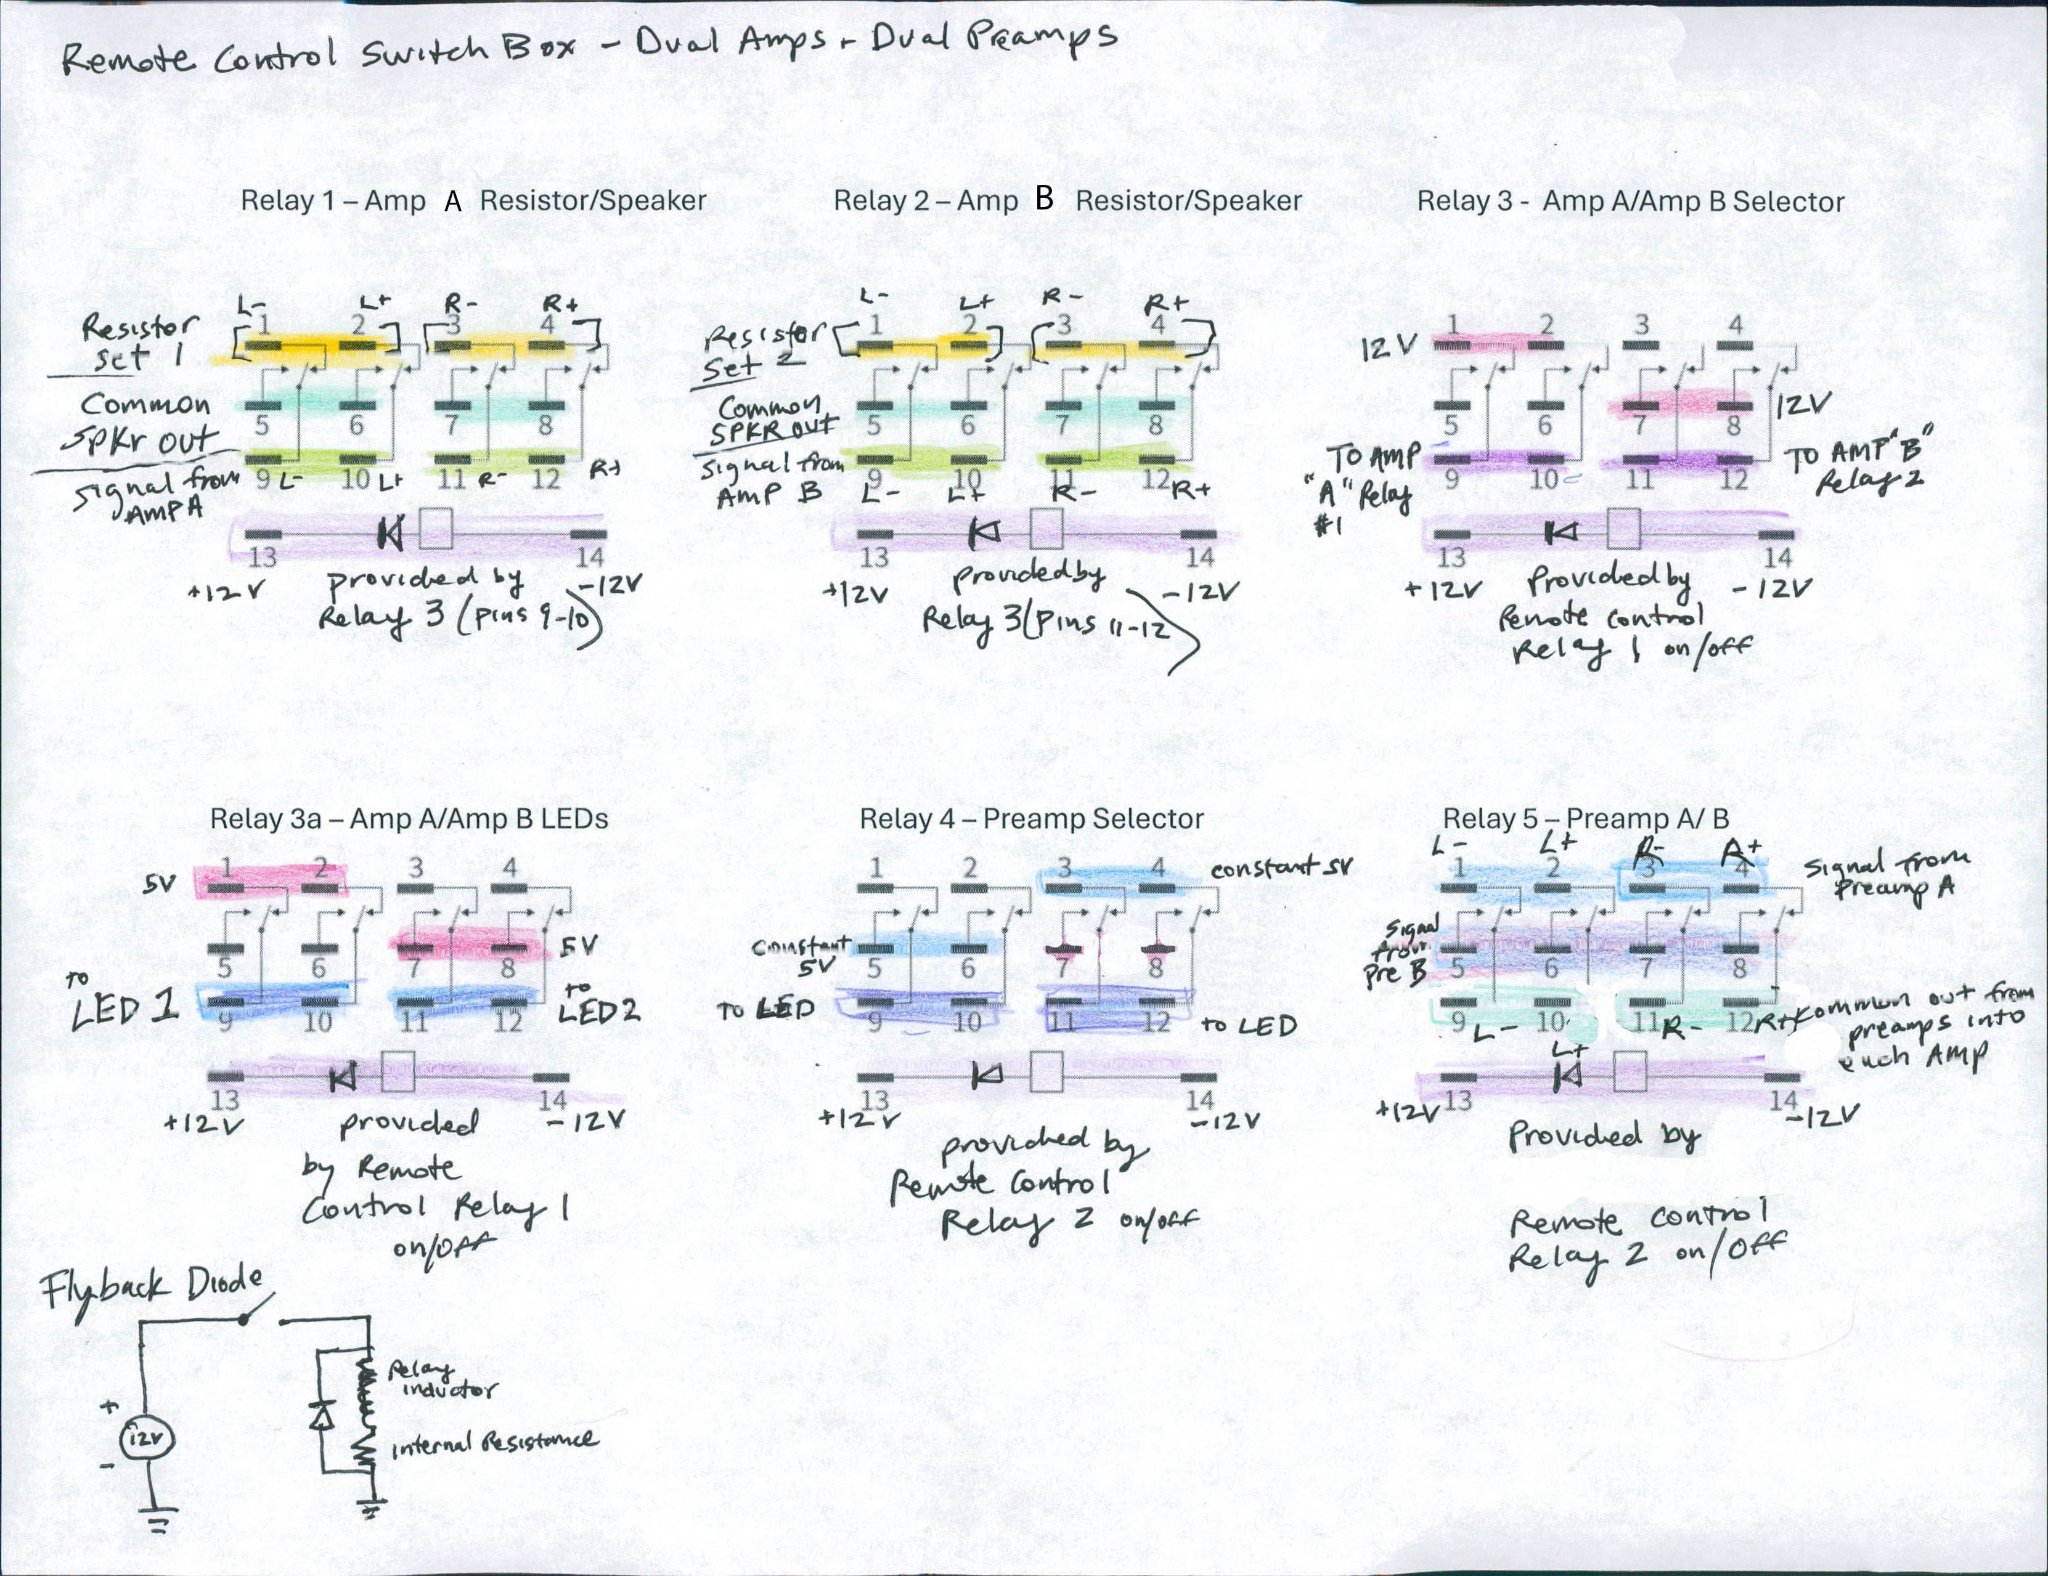 Remote Control Switch Box - Dual Amps + Dual Preamps
Relay 1 – Amp A Resistor/Speaker
L- L+ R- R+
Resistor
set 1
1 2 3 4
Common
Spkr out
5 6 7 8
signal from
AMP A
9 L- 10 L+ 11 R- 12 R+
13 14
+12V -12V
provided by
Relay 3 (Pins 9-10)
Relay 2 – Amp B Resistor/Speaker
L- L+ R- R+
Resistor
Set 2
1 2 3 4
Common
SPKR OUT
5 6 7 8
signal from
AMP B
9 10 11 12
L- L+ R- R+
13 14
+12V -12V
provided by
Relay 3 (Pins 11-12)
Relay 3 - Amp A/Amp B Selector
1 2 3 4
12V
5 6 7 8
12V
TO AMP
"A" Relay
#1
9 10 11 12
TO AMP "B"
Relay 2
13 14
+12V -12V
Provided by
Remote control
Relay 1 on/off
Relay 3a – Amp A/Amp B LEDs
1 2 3 4
5V
5 6 7 8
5V
to
LED 1
9 10 11 12
to
LED 2
13 14
+12V -12V
provided
by Remote
Control Relay 1
on/off
Relay 4 – Preamp Selector
1 2 3 4
constant 5V
Constant
5V
5 6 7 8
TO LED
9 10 11 12
to LED
13 14
+12V -12V
provided by
Remote Control
Relay 2 on/off
Relay 5 – Preamp A/ B
L- L+ R- R+
1 2 3 4
Signal from
Preamp A
Signal
from
Pre B
5 6 7 8
9 10 11 12
L- L+ R- R+
Common out from
preamps into
each AMP
13 14
+12V -12V
Provided by
Remote Control
Relay 2 on/off
Flyback Diode
+
12V
-
Relay
inductor
internal Resistance